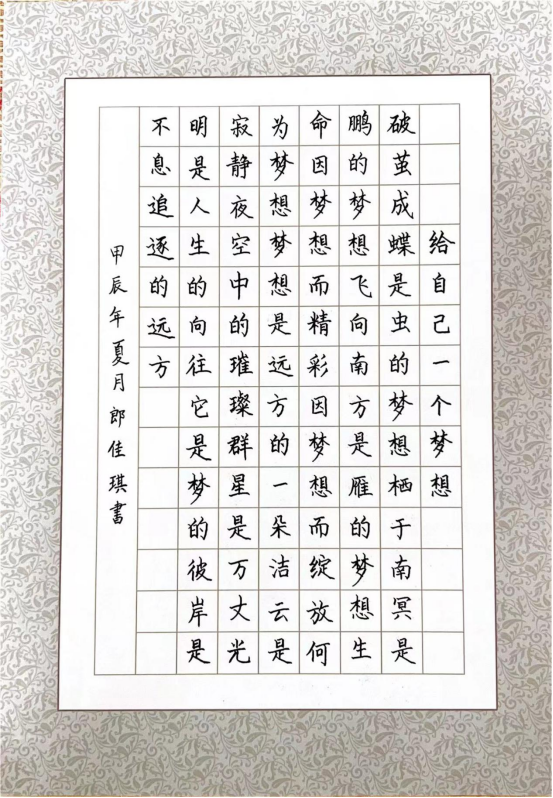 给自己一个梦想
破茧成蝶是虫的梦想栖于南冥是
鹏的梦想飞向南方是雁的梦想生
命因梦想而精彩因梦想而绽放何
为梦想梦想是远方的一朵洁云是
寂静夜空中的璀璨群星是万丈光
明是人生的向往它是梦的彼岸是
不息追逐的远方
甲辰年夏月郎佳琪書